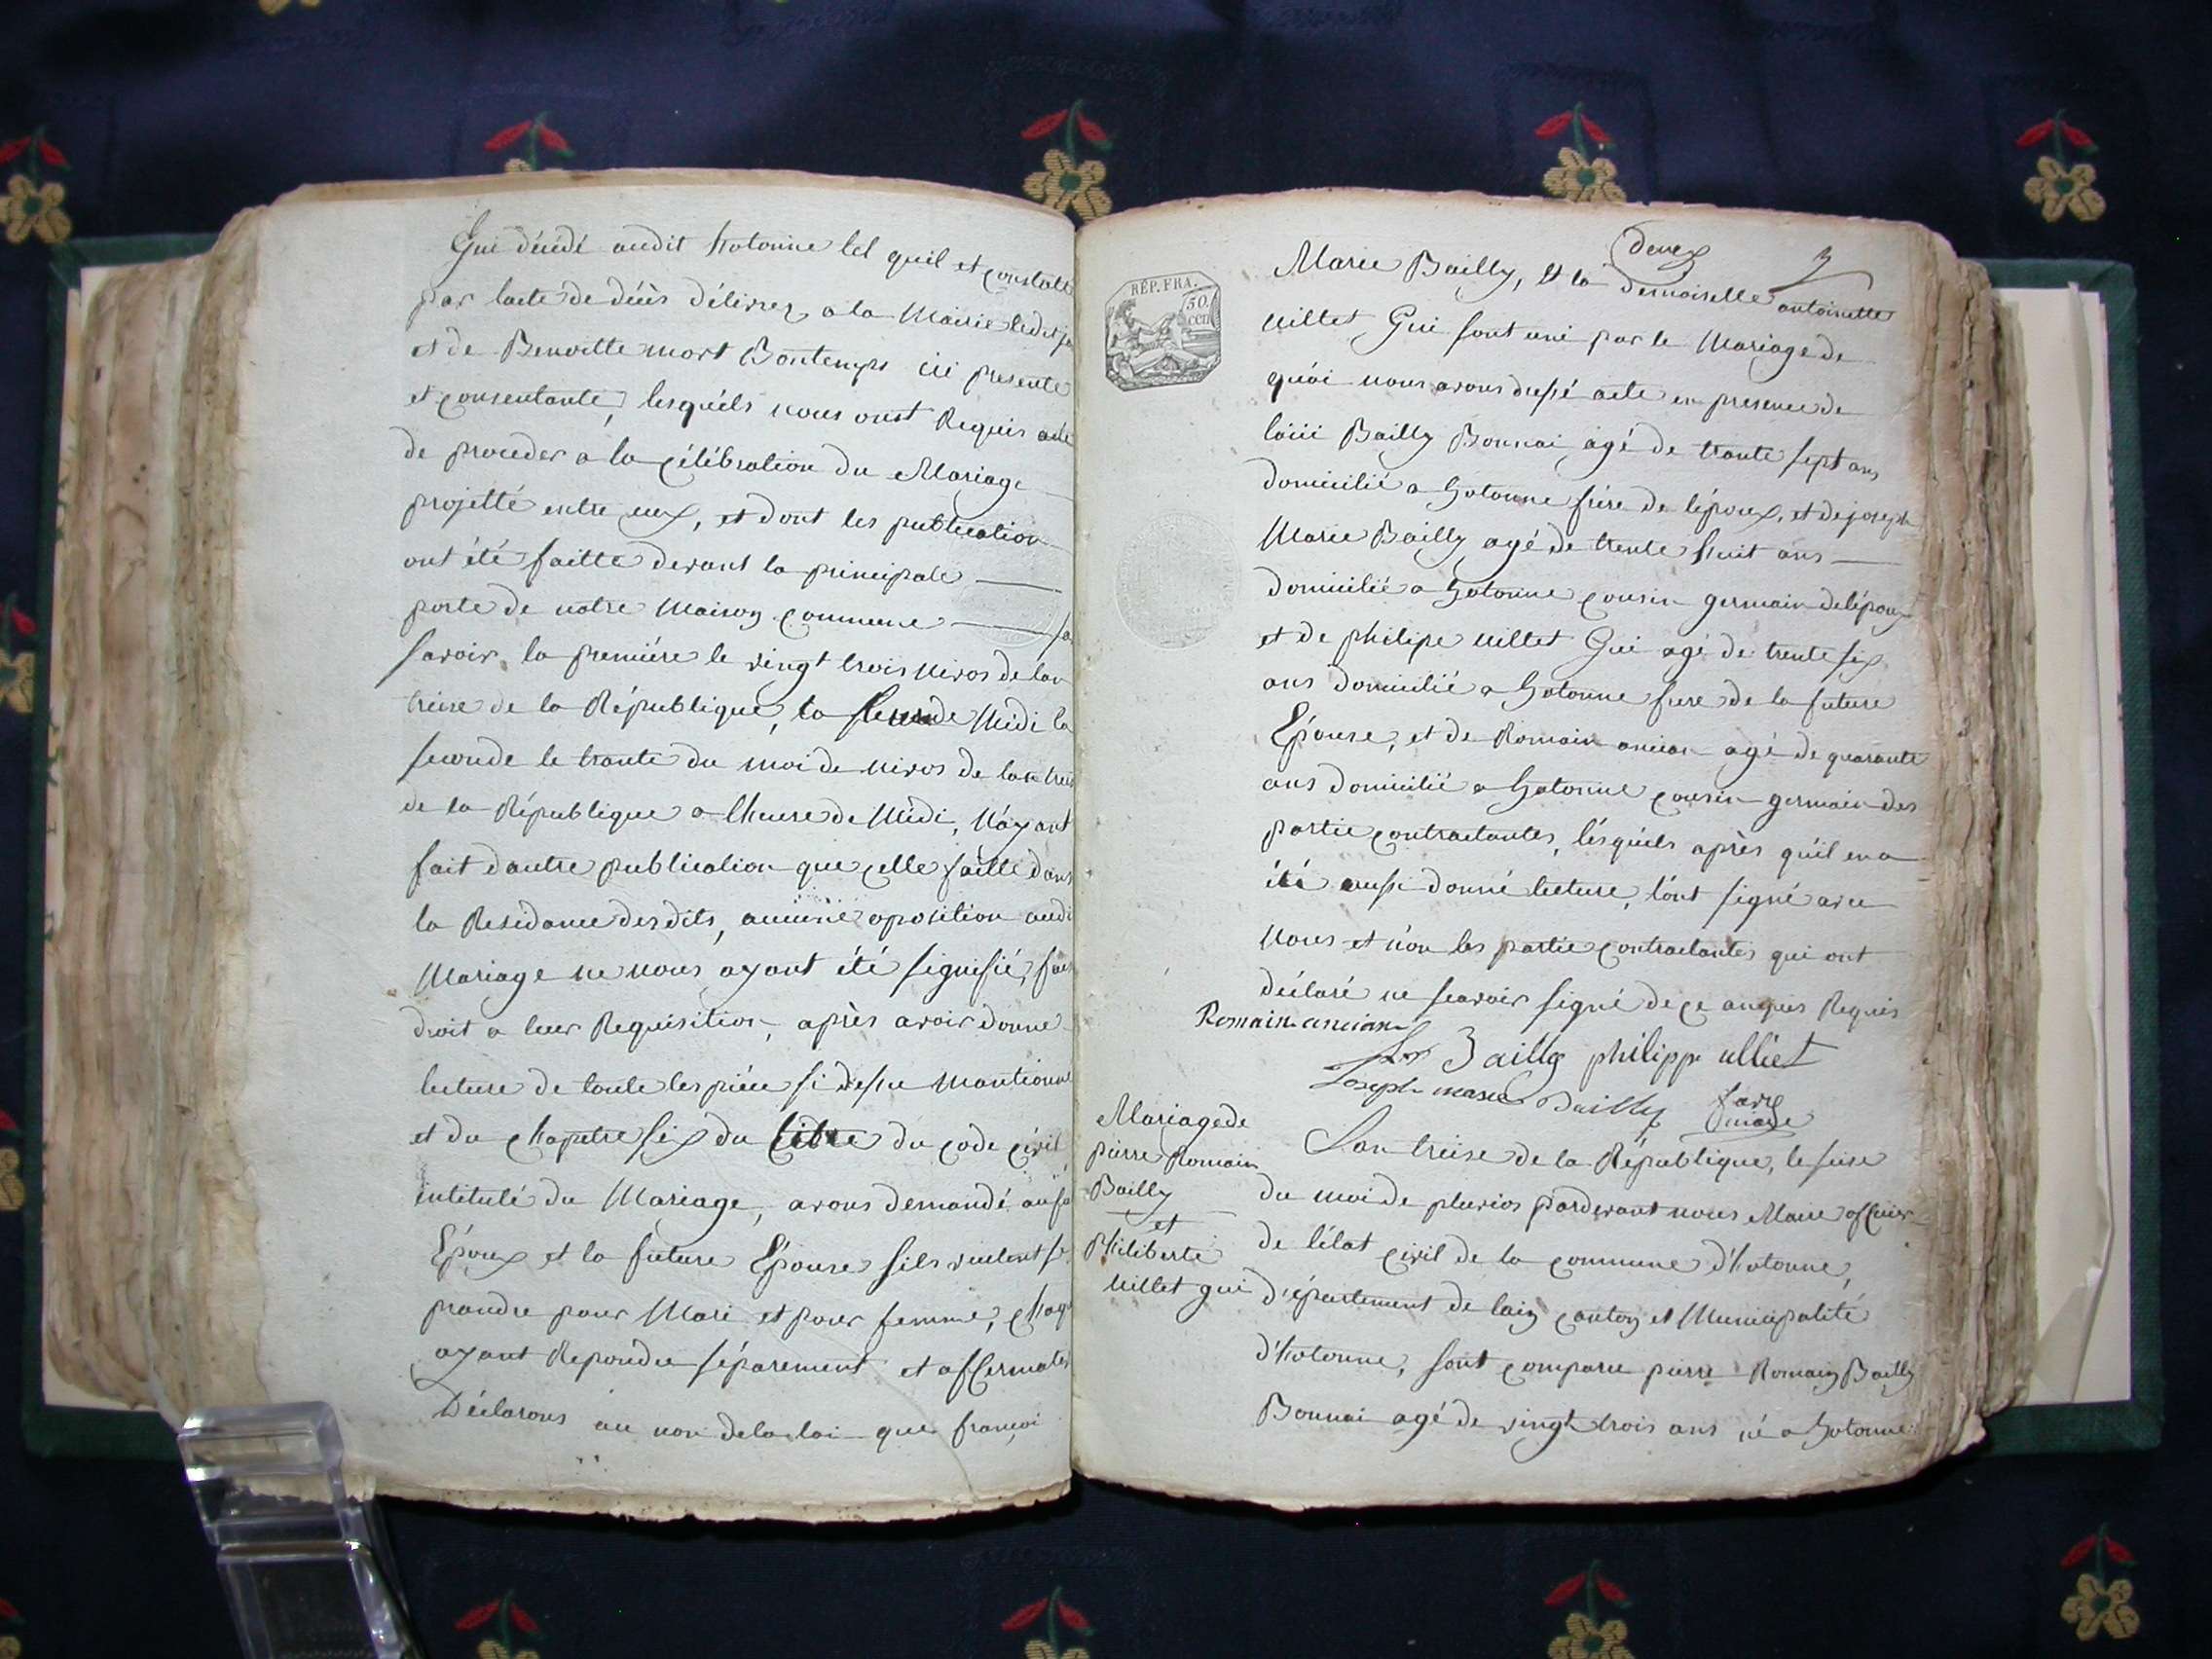 Gui décédé audit hotonne tel quil et constaté
par lacte de décès délivrez a la Mairie ledit
et de Benoitte mort Bontemps ici presente
et consentante, lesquéls nous onst Requis
de proceder a la célébration du Mariage
projetté entre eux, et dont les publication
ont été faitte devant la principale
porte de notre Maison commune
savoir la première le vingt trois nivos de lan
treize de la République, la seconde Midi la
seconde le trante du moi de nivos de lan treize
de la République a lheure de Midi, N'ayant
fait dautre publication que celle faitte dans
la Residance desdits, aucune oposition audi
Mariage ne nous ayant été signifié,
droit a leur Requisition, après avoir donné
lecture de toute les pièce si dessu mantionné
et du chapitre six du titre du code civil
intitulé du Mariage, avons demandé au
Epoux et la future Epouse sils veulent se
prandre pour Mari et pour femme, chaq
ayant Repondu séparement et affermati
Déclarons au non de la loi que françoi
deux
Marie Bailly, Et la demoiselle antoinette
uillet Gui sont uni par le Mariage de
quoi nous avons dressé acte en presence de
Bailly Bonnai agé de trante sept ans
domicilié a hotonne frère de lépoux, et de joseph
Marie Bailly agé de trente huit ans
domicilié a hotonne cousin germain de lépoux
et de philipe uillet Gui agé de trente six
ans domicilié a hotonne frere de la future
Epouse, et de Romain ancian agé de quarante
ans domicilié a hotonne cousin germain des
partie contractantes, lésquéls après quil en a
été aussi donné lecture, lont signé avec
Nous et non les partie contractantes qui ont
déclaré ne scavoir signé de ce anquis Requis
Romain ancian
Bailly philippe ulliet
Joseph marie Bailly
maire
Mariage de
pierre Romain
Bailly
et
Philiberte
uillet gui
Lan treize de la République, le seize
du moi de pluvios pardevant nous Maire officier
de létat civil de la commune d'hotonne,
département de lain canton et Municipalité
d'hotonne, sont comparu pierre Romain Bailly
Bonnai agé de vingt trois ans né a hotonne
RÉP. FRA.
50.
cen